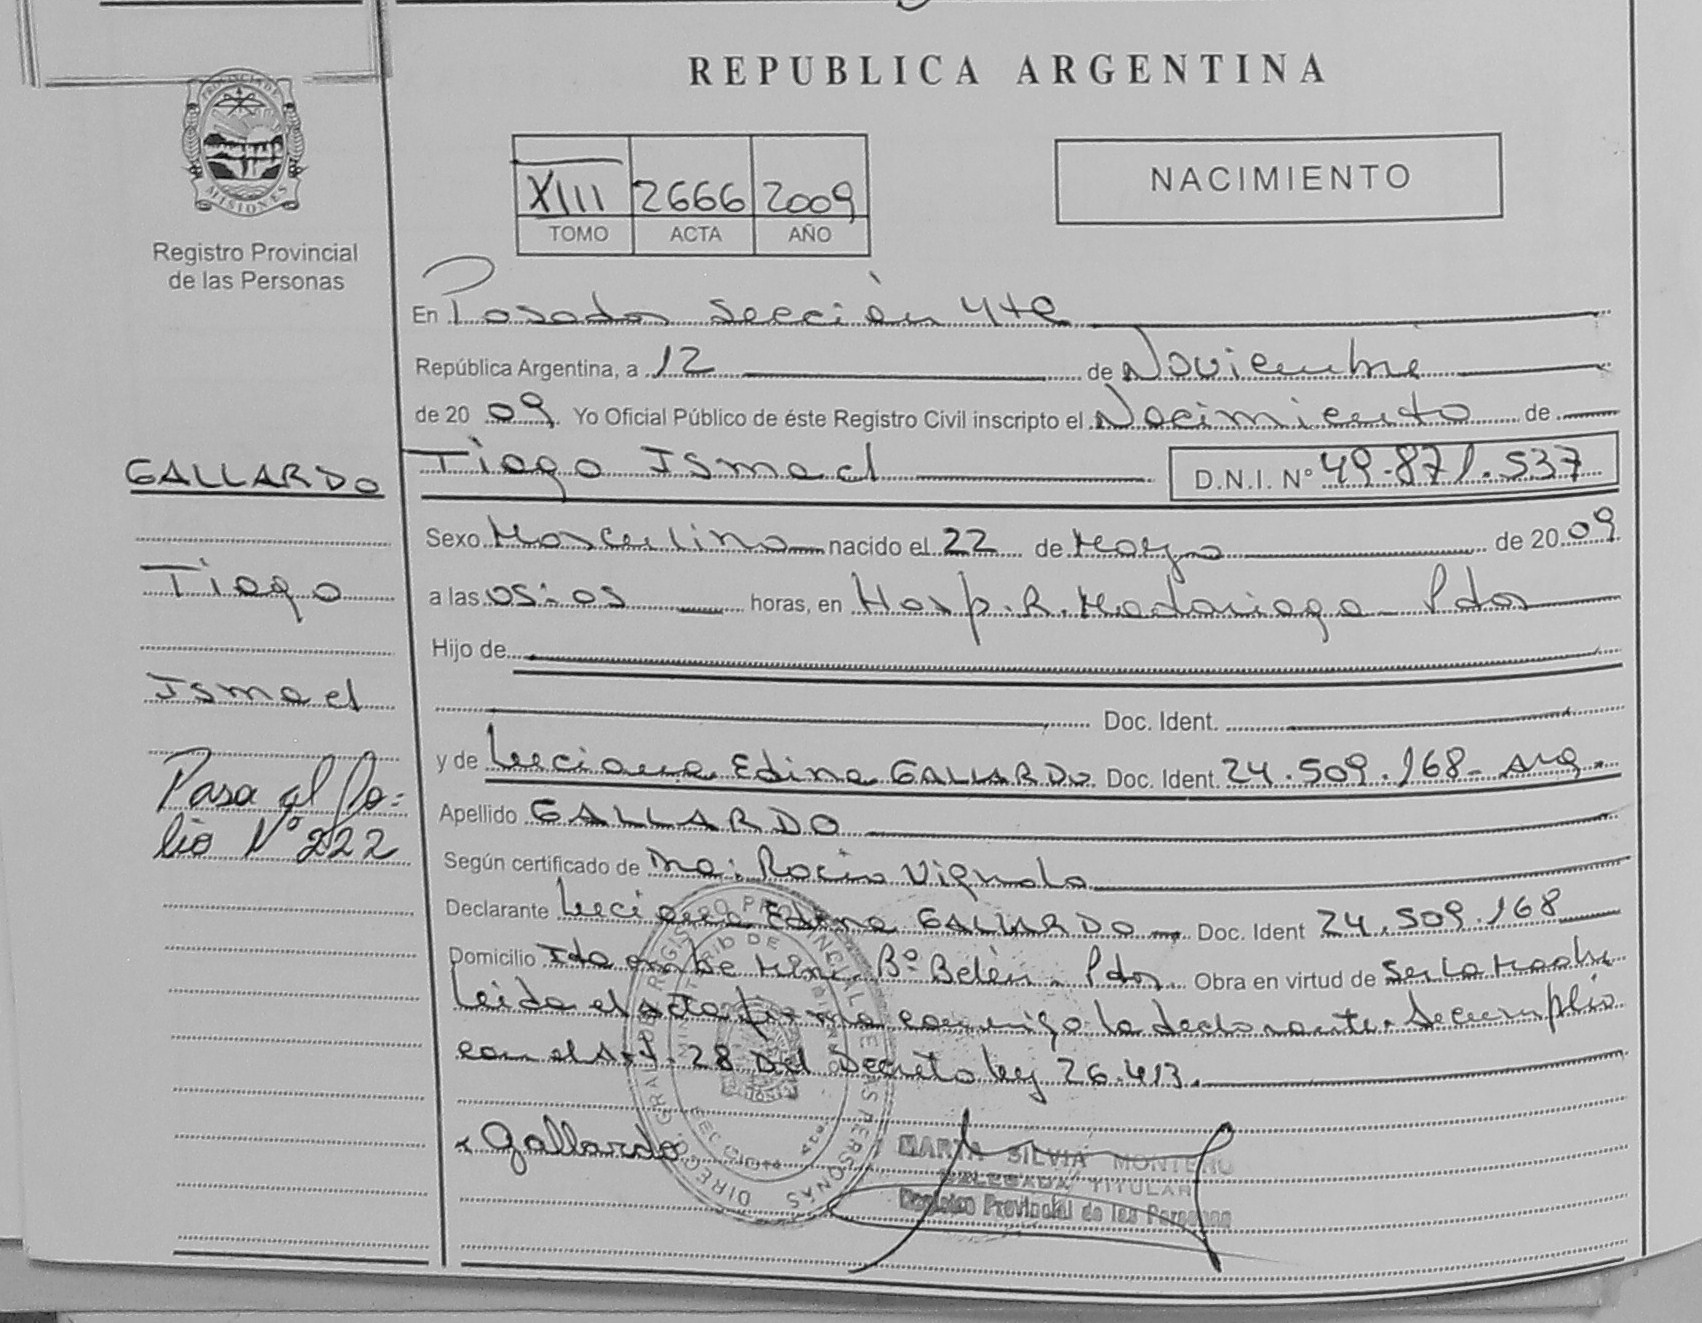 REPUBLICA ARGENTINA
PROVINCIA DE
MISIONES
Registro Provincial
de las Personas
XIII 2666 2009
TOMO ACTA AÑO
NACIMIENTO
En Posadas sección 4ta
República Argentina, a 12 de Noviembre
de 2009. Yo Oficial Público de éste Registro Civil inscripto el Nacimiento de
Tiago Ismael D.N.I. N° 49.871.537
Sexo Masculino nacido el 22 de Mayo de 2009
a las 05:05 horas, en Hosp. R. Madariaga Pdas
Hijo de
Doc. Ident.
y de Luciana Edina GALLARDO Doc. Ident. 24.509.168- Arg.
Apellido GALLARDO
Según certificado de Dra: Rocio Vignola
Declarante Luciana Edina GALLARDO Doc. Ident 24.509.168
Domicilio Bº Belén - Pdas. Obra en virtud de Ser La Madre
Leida el acta firma conmigo la declarante. Se cumplio
con el Art. 28 Del Decreto ley 26.413.
Gallardo
MARTA SILVIA MONTERO
DELEGADA TITULAR
Registro Provincial de las Personas
GALLARDO
Tiago
Ismael
Pasa al fo=
lio Nº 222